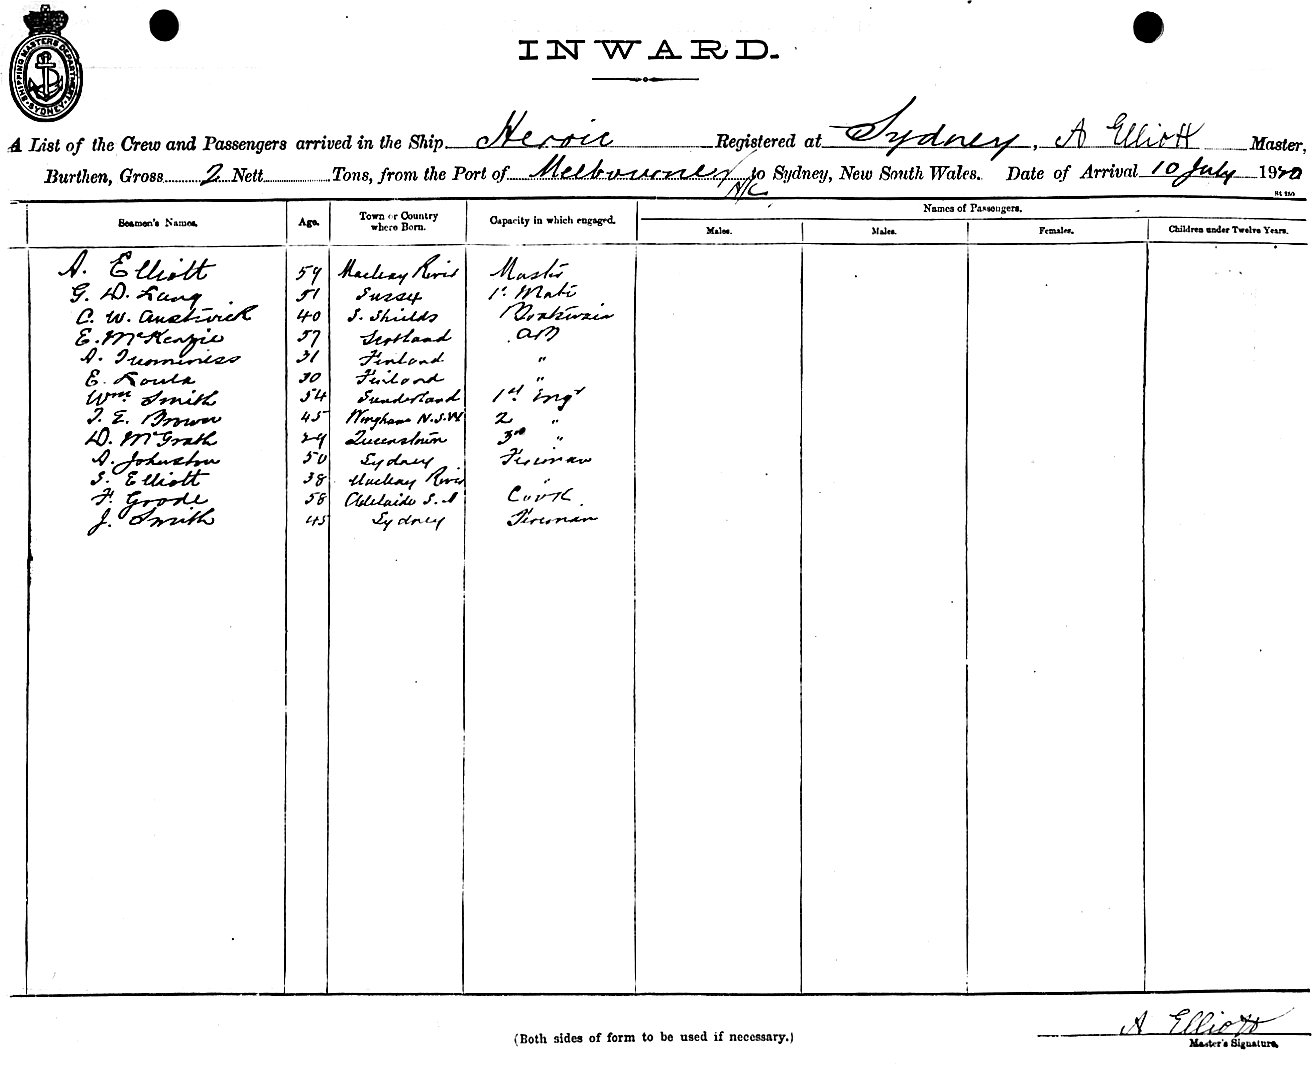 SHIPPING MASTERS DEPARTMENT. SYDNEY.
INWARD.
A List of the Crew and Passengers arrived in the Ship Heroic Registered at Sydney, A Elliott Master,
Burthen, Gross 2 Nett Tons, from the Port of Melbourne to Sydney, New South Wales. Date of Arrival 10 July 1920
N/C
Seamen's Names. Age. Town or Country where Born. Capacity in which engaged. Names of Passengers.
Males. Males. Females. Children under Twelve Years.
A. Elliott 59 Macleay River Master
G. D. Lang 51 Sussex 1st Mate
C. W. Austwick 40 S. Shields Boatswain
E. McKenzie 57 Scotland AB
A. 31 Finland "
E. 30 Finland "
Wm. Smith 54 Sunderland 1st Engr
T. E. Brown 45 Wingham N.S.W 2 "
D. McGrath 29 Queenstown 3rd "
A. Johnston 50 Sydney Fireman
S. Elliott 38 Macleay River "
F. Goode 58 Adelaide S.A Cook
J. Smith 45 Sydney Fireman
(Both sides of form to be used if necessary.)
A Elliott
Master's Signature.